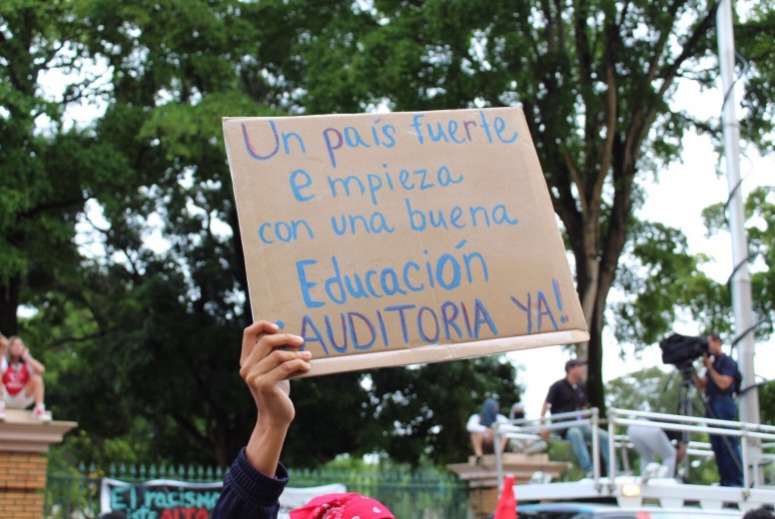 Un país fuerte
empieza
con una buena
Educación
¡AUDITORIA YA!
El racismo
ALTO